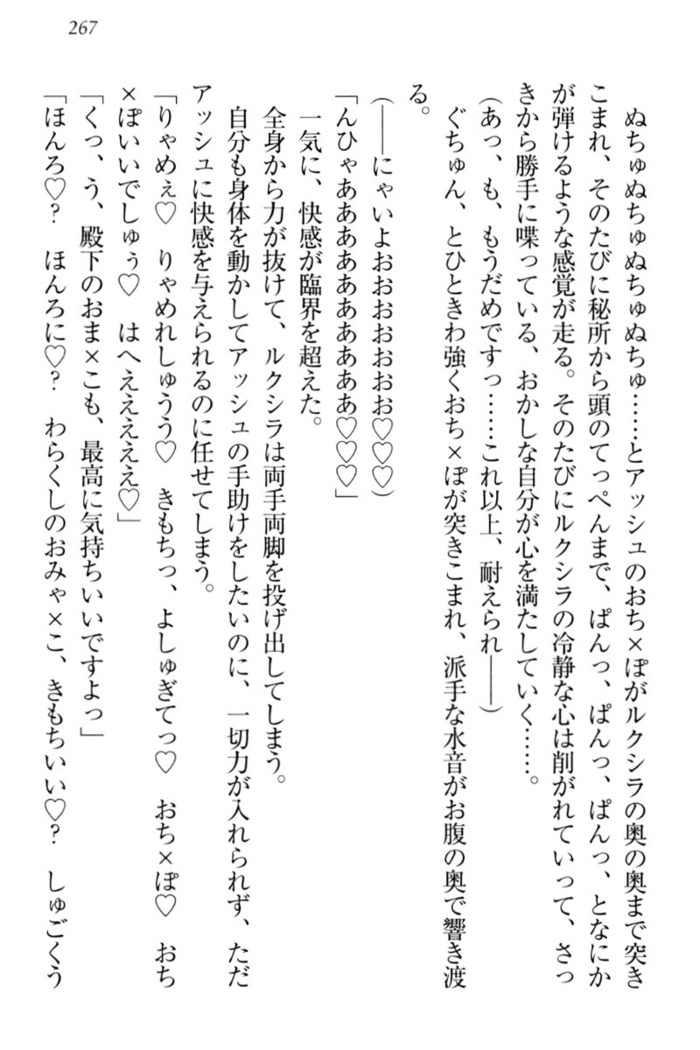 267
ぬちゅぬちゅぬちゅぬちゅ……とアッシュのおち×ぽがルクシラの奥の奥まで突き
こまれ、そのたびに秘所から頭のてっぺんまで、ぱんっ、ぱんっ、ぱんっ、となにか
が弾けるような感覚が走る。そのたびにルクシラの冷静な心は削がれていって、さっ
きから勝手に喋っている、おかしな自分が心を満たしていく……。
(あっ、も、もうだめですっ……これ以上、耐えられ――)
ぐちゅん、とひときわ強くおち×ぽが突きこまれ、派手な水音がお腹の奥で響き渡
る。
(――にゃいよおおおおおおお♡♡♡)
「んひゃああああああああああ♡♡♡」
一気に、快感が臨界を超えた。
全身から力が抜けて、ルクシラは両手両脚を投げ出してしまう。
自分も身体を動かしてアッシュの手助けをしたいのに、一切力が入れられず、ただ
アッシュに快感を与えられるのに任せてしまう。
「りゃめぇ♡　りゃめれしゅうう♡　きもちっ、よしゅぎてっ♡　おち×ぽ♡　おち
×ぽいいでしゅぅ♡　はへえええええ♡」
「くっ、う、殿下のおま×こも、最高に気持ちいいですよっ」
「ほんろ♡?　ほんろに♡?　わらくしのおみゃ×こ、きもちいい♡?　しゅごくう